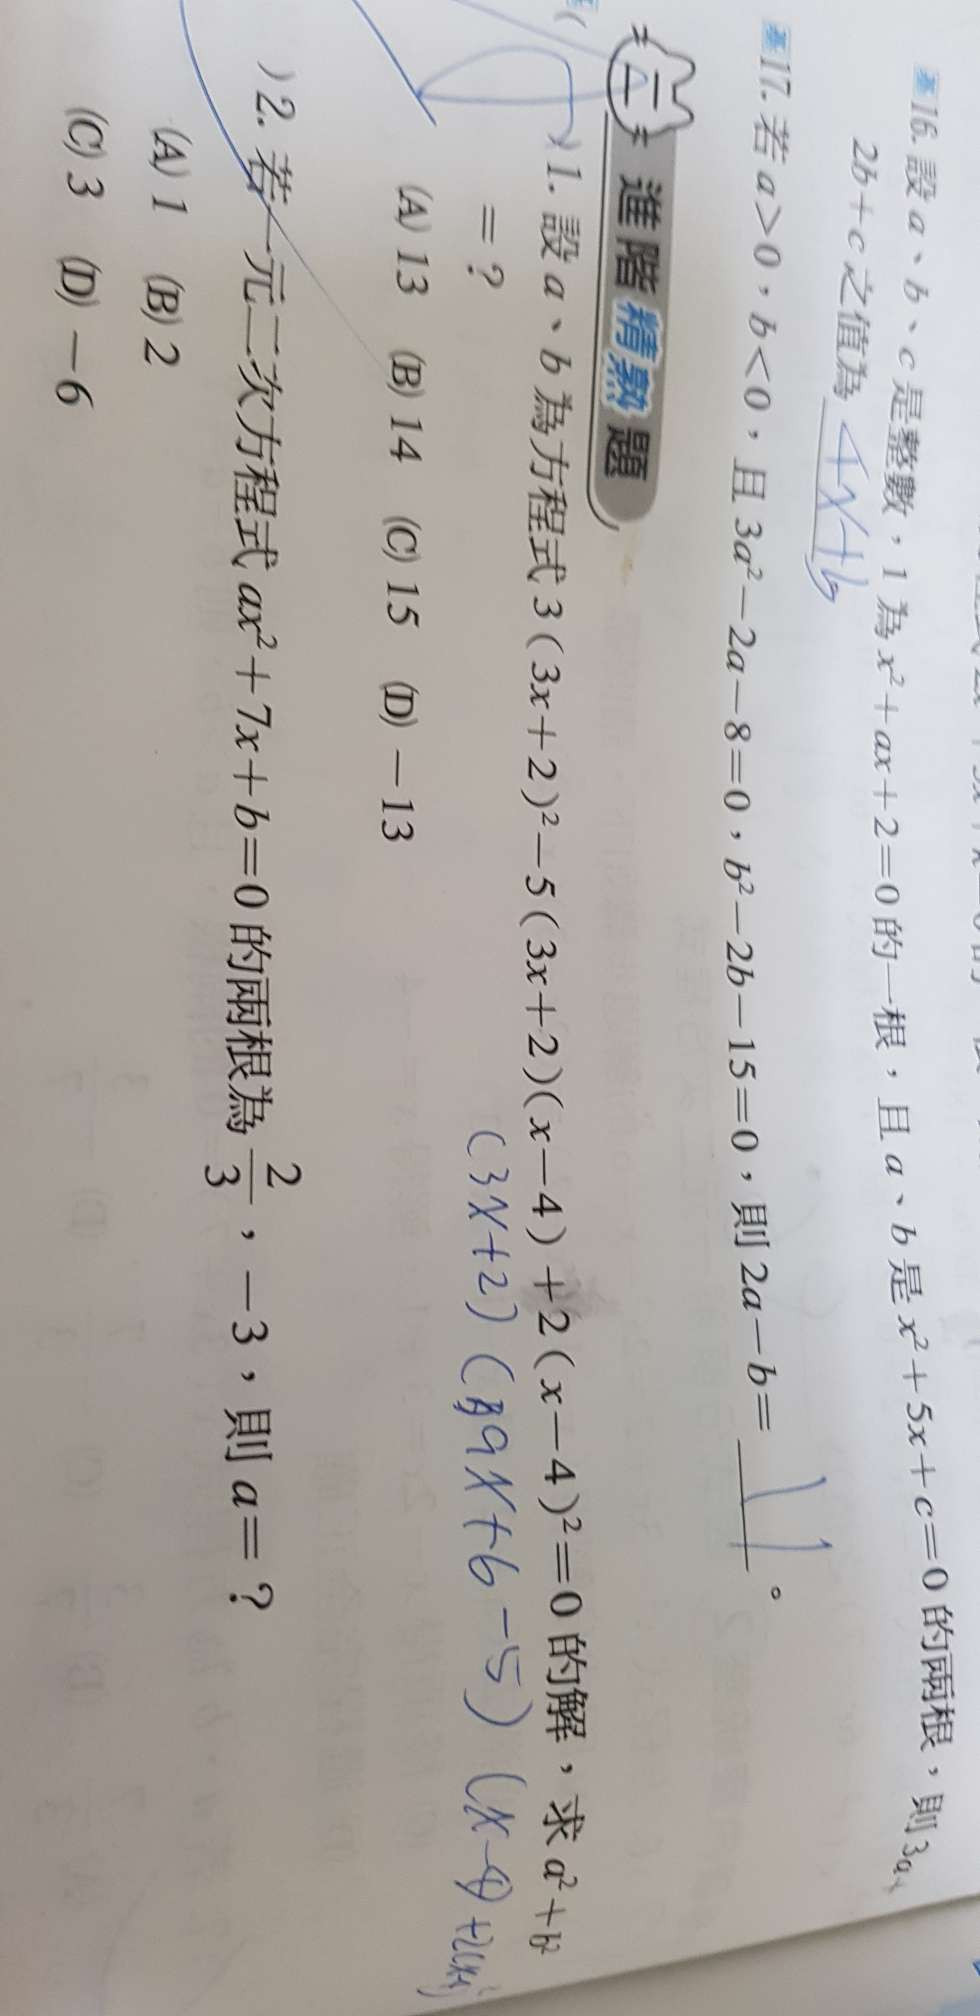 基16. 設 a、b、c 是整數，1 為 x²+ax+2=0 的一根，且 a、b 是 x²+5x+c=0 的兩根，則 3a+
2b+c 之值為 4x+b
基17. 若 a>0，b<0，且 3a²-2a-8=0，b²-2b-15=0，則 2a-b= 11 。
二 進階精熟題
)1. 設 a、b 為方程式 3(3x+2)²-5(3x+2)(x-4)+2(x-4)²=0 的解，求 a²+b²
=？
(3x+2)(9x+6-5)(x-4)
(A) 13 (B) 14 (C) 15 (D) -13
)2. 若一元二次方程式 ax²+7x+b=0 的兩根為 2/3，-3，則 a=？
(A) 1 (B) 2
(C) 3 (D) -6